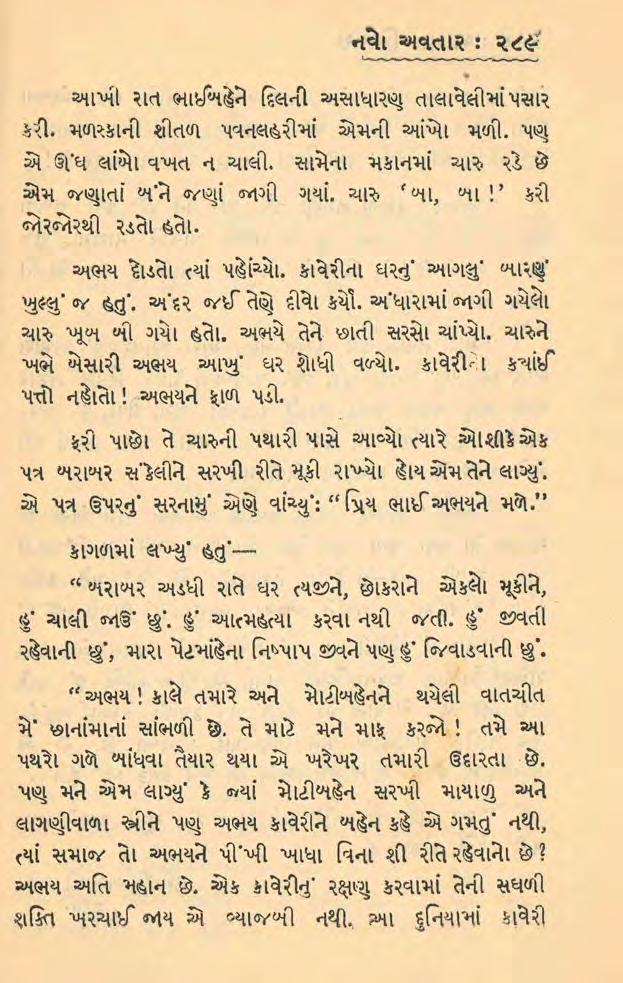 નવો અવતાર : ૨૮૯
આખી રાત ભાઈબહેને દિલની અસાધારણ તાલાવેલીમાં પસાર
કરી. મળસ્કાની શીતળ પવનલહરીમાં એમની આંખો મળી. પણ
એ ઊંઘ લાંબો વખત ન ચાલી. સામેના મકાનમાં ચારુ રડે છે
એમ જણાતાં બંને જણાં જાગી ગયાં. ચારુ ‘બા, બા !’ કરી
જોરજોરથી રડતો હતો.
અભય દોડતો ત્યાં પહોંચ્યો. કાવેરીના ઘરનું આગલું બારણું
ખુલ્લું જ હતું. અંદર જઈ તેણે દીવો કર્યો. અંધારામાં જાગી ગયેલો
ચારુ ખૂબ બી ગયો હતો. અભયે તેને છાતી સરસો ચાંપ્યો. ચારુને
ખભે બેસારી અભય આખું ઘર શોધી વળ્યો. કાવેરીનો ક્યાંઈ
પત્તો નહોતો ! અભયને ફાળ પડી.
ફરી પાછો તે ચારુની પથારી પાસે આવ્યો ત્યારે ઓશીકે એક
પત્ર બરાબર સંકેલીને સરખી રીતે મૂકી રાખ્યો હોય એમ તેને લાગ્યું.
એ પત્ર ઉપરનું સરનામું એણે વાંચ્યું: “પ્રિય ભાઈ અભયને મળે.”
કાગળમાં લખ્યું હતું—
“બરાબર અડધી રાતે ઘર ત્યજીને, છોકરાને એકલો મૂકીને,
હું ચાલી જાઉં છું. હું આત્મહત્યા કરવા નથી જતી. હું જીવતી
રહેવાની છું, મારા પેટમાંહેના નિષ્પાપ જીવને પણ હું જિવાડવાની છું.
“અભય ! કાલે તમારે અને મોટીબહેનને થયેલી વાતચીત
મેં છાનાંમાનાં સાંભળી છે. તે માટે મને માફ કરજો ! તમે આ
પથરો ગળે બાંધવા તૈયાર થયા એ ખરેખર તમારી ઉદારતા છે.
પણ મને એમ લાગ્યું કે જ્યાં મોટીબહેન સરખી માયાળુ અને
લાગણીવાળા સ્ત્રીને પણ અભય કાવેરીને બહેન કહે એ ગમતું નથી,
ત્યાં સમાજ તો અભયને પીંખી ખાધા વિના શી રીતે રહેવાનો છે ?
અભય અતિ મહાન છે. એક કાવેરીનું રક્ષણ કરવામાં તેની સઘળી
શક્તિ ખરચાઈ જાય એ વ્યાજબી નથી. આ દુનિયામાં કાવેરી